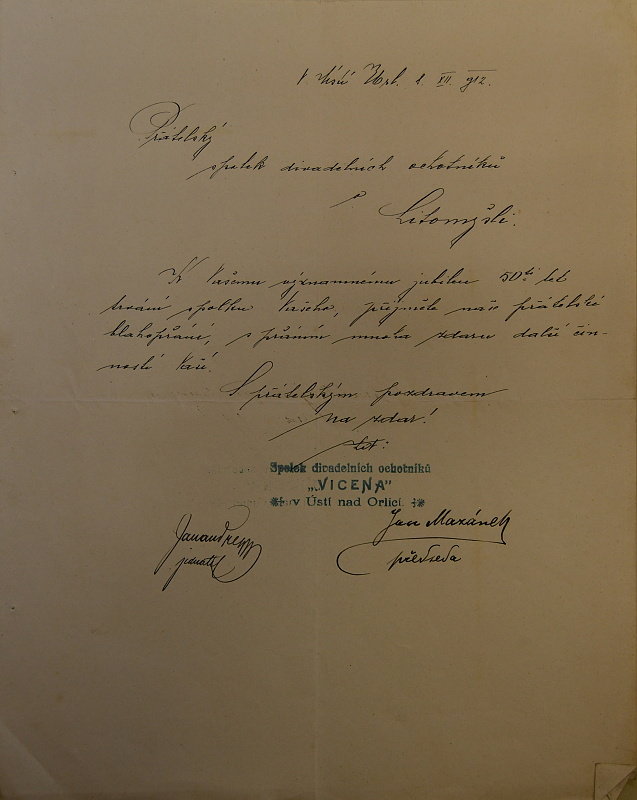 V Ústí ⁿ/Orl. 1. XII. 912.
Přátelský
spolek divadelních ochotníků
v
Litomyšli.
K Vašemu významnému jubileu 50ti let
trvání spolku Vašeho, přijměte naše přátelské
blahopřání, s přáním mnoha zdaru další čin-
nosti Vaší.
S přátelským pozdravem
Na zdar!
Spolek divadelních ochotníků
„VICENA"
v Ústí nad Orlicí.
Jan Mazánek
jednatel
předseda